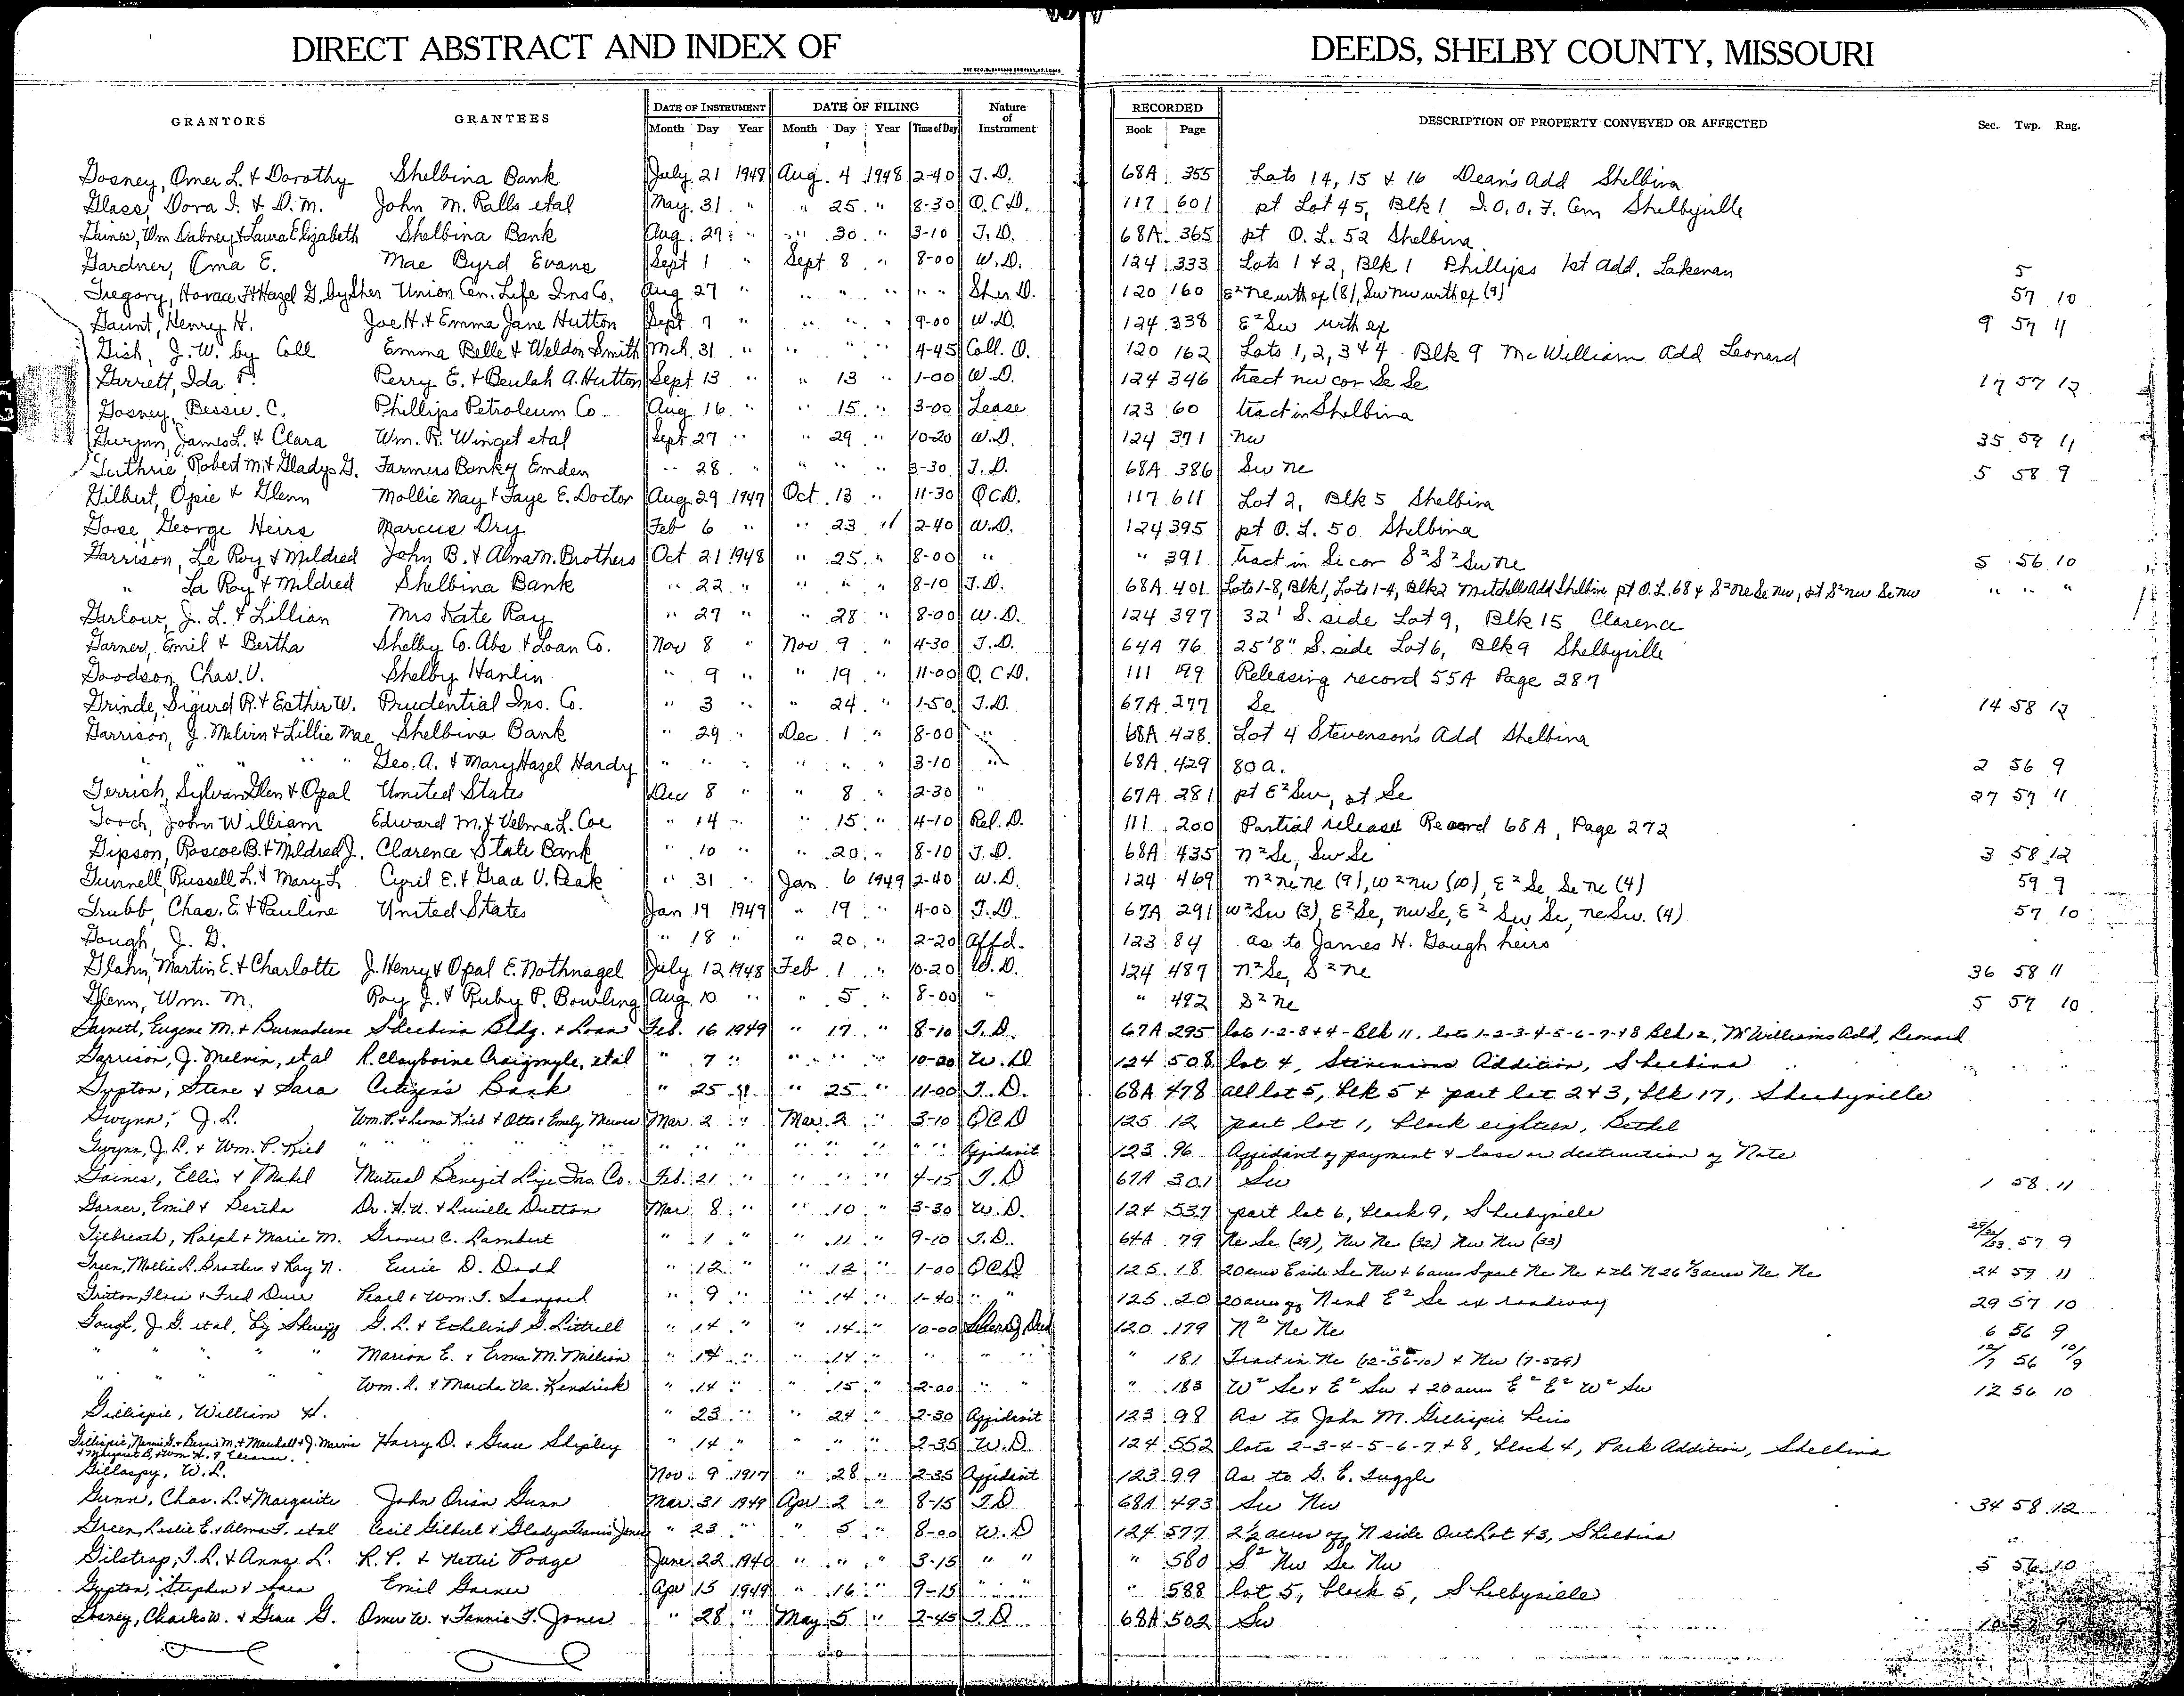 DIRECT ABSTRACT AND INDEX OF DEEDS, SHELBY COUNTY, MISSOURI
GRANTORS GRANTEES DATE OF INSTRUMENT DATE OF FILING Nature of Instrument RECORDED DESCRIPTION OF PROPERTY CONVEYED OR AFFECTED Sec. Twp. Rng.
Month Day Year Month Day Year Time of Day Book Page
Gosney, Omer L. & Dorothy Shelbina Bank July 21 1948 Aug. 4 1948 2-40 T.D. 68A 355 Lots 14, 15 & 16 Dean's Add Shelbina
Glass, Dora I. & D.M. John M. Ralls etal May 31 " " 25 " 8-30 Q.C.D. 117 601 pt Lot 45, Blk 1 I.O.O.F. Cem Shelbyville
Gaines, Wm Dabney & Laura Elizabeth Shelbina Bank Aug. 27 " " 30 " 3-10 T.D. 68A 365 pt O.L. 52 Shelbina
Gardner, Oma E. Mae Byrd Evans Sept 1 " Sept 8 " 8-00 W.D. 124 333 Lots 1 & 2, Blk 1 Phillips 1st Add. Lakenan
Gregory, Horace F & Hazel G. by Sher Union Cen. Life Ins Co. Aug 27 " " " " " " Sher D. 120 160 E² ne with ex (8), Sw nw with ex (9) 5 57 10
Gaunt, Henry H. Joe H. & Emma Jane Hutton Sept 7 " " " " 9-00 W.D. 124 338 E² Sw with ex 9 57 11
Gish, J.W. by Coll Emma Belle & Weldon Smith Mch. 31 " " " " 4-45 Coll. D. 120 162 Lots 1, 2, 3 & 4 Blk 9 McWilliam Add Leonard
Garrett, Ida P. Perry E. & Beulah A. Hutton Sept 13 " " 13 " 1-00 W.D. 124 346 tract nw cor Se Se 17 57 12
Gosney, Bessie C. Phillips Petroleum Co. Aug 16 " " 15 " 3-00 Lease 123 60 tract in Shelbina
Gwynn, James L. & Clara Wm. R. Winget etal Sept 27 " " 29 " 10-20 W.D. 124 371 nw 35 59 11
Guthrie, Robert M. & Gladys G. Farmers Bank of Emden " 28 " " " " 3-30 T.D. 68A 386 Sw ne 5 58 9
Gilbert, Opie & Glenn Mollie May & Faye E. Doctor Aug 29 1947 Oct 13 " 11-30 QCD. 117 611 Lot 2, Blk 5 Shelbina
Gose, George Heirs Marcus Dry Feb 6 " " 23 " 2-40 W.D. 124 395 pt O.L. 50 Shelbina
Garrison, Le Roy & Mildred John B. & Alma M. Brothers Oct 21 1948 " 25 " 8-00 " " 391 tract in Se cor S² S² Sw ne 5 56 10
" La Roy & Mildred Shelbina Bank " 22 " " " " 8-10 T.D. 68A 401 Lots 1-8, Blk 1, Lots 1-4, Blk 2 Mitchells Add Shelbina pt O.L. 68 & S² ne Se nw, pt S² nw Se nw " " "
Garlow, J.L. & Lillian Mrs Kate Ray " 27 " " 28 " 8-00 W.D. 124 397 32' S. side Lot 9, Blk 15 Clarence
Garner, Emil & Bertha Shelby Co. Abs. & Loan Co. Nov 8 " Nov. 9 " 4-30 T.D. 64A 76 25'8" S. side Lot 6, Blk 9 Shelbyville
Goodson, Chas. V. Shelby Hanlin " 9 " " 19 " 11-00 Q.C.D. 111 199 Releasing record 55A Page 287
Grinde, Sigurd R. & Esther W. Prudential Ins. Co. " 3 " " 24 " 1-50 T.D. 67A 277 Se 14 58 12
Garrison, J. Melvin & Lillie Mae Shelbina Bank " 29 " Dec. 1 " 8-00 " 68A 428 Lot 4 Stevenson's Add Shelbina
" " " " Geo. A. & Mary Hazel Hardy " " " " " " 3-10 " 68A 429 80 a. 2 56 9
Gerrish, Sylvan Glen & Opal United States Dec 8 " " 8 " 2-30 " 67A 281 pt E² Sw, pt Se 27 57 11
Gooch, John William Edward M. & Velma L. Coe " 14 " " 15 " 4-10 Rel. D. 111 200 Partial release Record 68A, Page 272
Gipson, Roscoe B. & Mildred J. Clarence State Bank " 10 " " 20 " 8-10 T.D. 68A 435 n² Se, Sw Se 3 58 12
Gunnell, Russell L. & Mary L Cyril E. & Grace V. Peak " 31 " Jan 6 1949 2-40 W.D. 124 469 n² ne ne (9), w² nw (10), E² Se, Se ne (4) 59 9
Grubb, Chas. E. & Pauline United States Jan 19 1949 " 19 " 4-00 T.D. 67A 291 w² Sw (3), E² Se, nw Se, E² Sw Se, ne Sw. (4) 57 10
Gough, J.G. " 18 " " 20 " 2-20 Affd. 123 84 as to James H. Gough heirs
Glahn, Martin E. & Charlotte J. Henry & Opal E. Nothnagel July 12 1948 Feb 1 " 10-20 W.D. 124 487 n² Se, S² ne 36 58 11
Glenn, Wm. M. Roy J. & Ruby P. Bowling Aug 10 " " 5 " 8-00 " " 492 S² ne 5 57 10
Garnett, Eugene M. & Burnadeene Shelbina Bldg. & Loan Feb. 16 1949 " 17 " 8-10 T.D. 67A 295 lots 1-2-3 & 4 - Blk 11, lots 1-2-3-4-5-6-7- & 8 Blk 12, McWilliams Add, Leonard
Garrison, J. Melvin, et al R. Clayboine Craigmyle, et al " 7 " " " " 10-20 W.D 124 508 lot 4, Stevensons Addition, Shelbina
Gypton, Steve & Sara Citizen's Bank " 25 " " 25 " 11-00 T.D. 68A 478 all lot 5, blk 5 & part lot 2 & 3, blk 17, Shelbyville
Gwynn, J.L. Wm. P. & Leona Kieb & Otto & Emily Mar. 2 " Mar. 2 " 3-10 QCD 125 12 part lot 1, block eighteen, Bethel
Gwynn, J.L. & Wm. P. Kieb " " " " " " " " " " Affidavit 123 96 Affidavit of payment & loss or destruction of Note
Gaines, Ellis & Mabel Mutual Benefit Life Ins. Co. Feb. 21 " " " " 4-15 T.D 67A 301 Sw 1 58 11
Garner, Emil & Bertha Dr. H.U. & Lucielle Dutton Mar. 8 " " 10 " 3-30 W.D. 124 537 part lot 6, block 9, Shelbyville
Gilbreath, Ralph & Marie M. Grover C. Lambert " 1 " " 11 " 9-10 T.D. 64A 79 Ne Se (29), Nw Ne (32) Nw Nw (33) 29/32/33 57 9
Green, Mollie L. Brother & Ray N. Eurie D. Dodd " 12 " " 12 " 1-00 QCD 125 18 20 acres E side Se Nw & 6 acres S part Ne Ne & the N 26 2/3 acres Ne Ne 24 59 11
Gritton, & Fred Durr Pearl & Wm. T. Sanford " 9 " " 14 " 1-40 " " 125 20 20 acres of N end E² Se ex roadway 29 57 10
Gough, J.G. et al, by Sheriff G.L. & G. Littrell " 14 " " 14 " 10-00 Sheriff Deed 120 179 N² Ne Ne 6 56 9
" " " " " Marion E. & Erma M. Million " 14 " " 14 " " " " " 181 Tract in Ne (12-56-10) & Nw (7-569) 12/7 56 10/9
" " " " " Wm. L. & Martha Va. Kendrick " 14 " " 15 " 2-00 " " " 183 W² Se & E² Sw & 20 acres E² E² W² Sw 12 56 10
Gillispie, William H. " 23 " " 24 " 2-30 Affidavit 123 98 As to John M. Gillispie heirs
Gillispie, Nannie G. & Bessie M. & Marshall & J. Marvin Harry D. & Grace Shipley " 14 " " " " 2-35 W.D. 124 552 lots 2-3-4-5-6-7 & 8, block 4, Park Addition, Shelbina
& Margaret B. & Wm H. & Eleanor.
Gillaspy, W.L. Nov. 9 1917 " 28 " 2-35 Affidavit 123 99 As to G.E. Tuggle
Gunn, Chas. L. & Margarite John Orian Gunn Mar. 31 1949 Apr 2 " 8-15 T.D 68A 493 Sw Nw 34 58 12
Green, Leslie E. & Alma T. et al Cecil Gilbert & Gladys Francis Jones " 23 " " 5 " 8-00 W.D 124 577 2½ acres off N side Out Lot 43, Shelbina
Gilstrap, T.L. & Anna L. R.P. & Nettie Poage June 22 1940 " " " 3-15 " " " 580 S² Nw Se Nw 5 56 10
Gypton, Stephen & Sara Emil Garner Apr 15 1949 " 16 " 9-15 " " " 588 lot 5, block 5, Shelbyville
Gosney, Charles W. & Grace G. Omer W. & Fannie T. Jones " 28 " May 5 " 2-45 T.D 68A 502 Sw